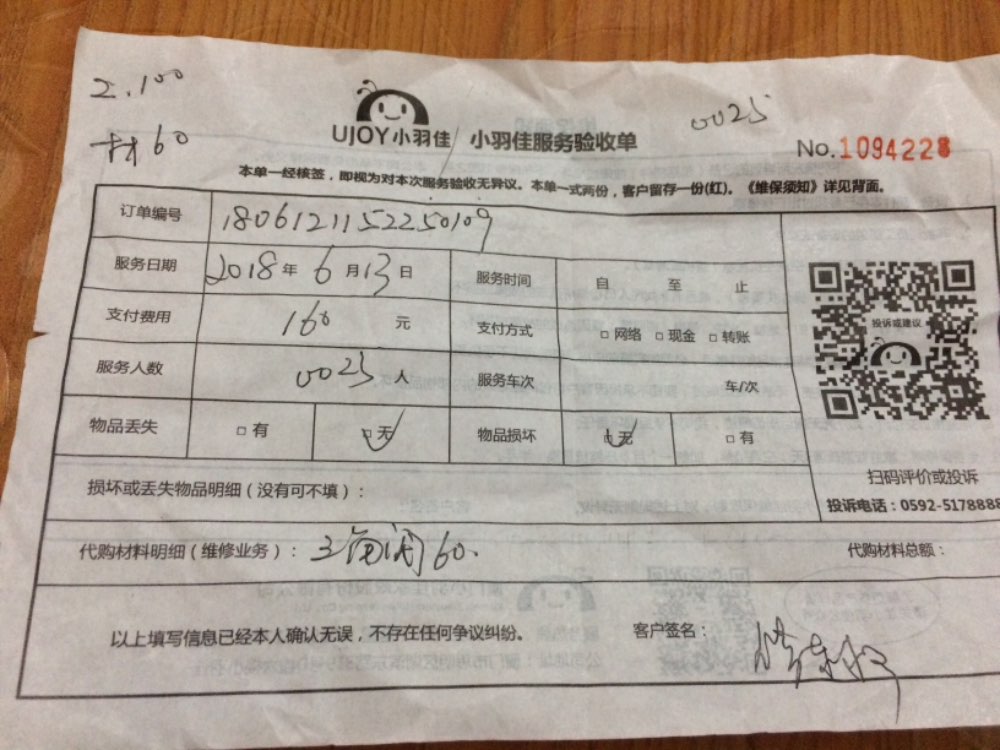 工.100
材60
0025
UJOY小羽佳 小羽佳服务验收单
No.1094228
本单一经核签，即视为对本次服务验收无异议。本单一式两份，客户留存一份(红)。《维保须知》详见背面。
订单编号 180612115225010 9
服务日期 2018年6月13日 服务时间 自 至 止
支付费用 160 元 支付方式 □网络 □现金 □转账
服务人数 0025 人 服务车次 车/次
物品丢失 □有 □无 物品损坏 □无 □有
投诉或建议
扫码评价或投诉
投诉电话：0592-5178888
损坏或丢失物品明细（没有可不填）：
代购材料明细（维修业务）：三角阀60. 代购材料总额：
以上填写信息已经本人确认无误，不存在任何争议纠纷。 客户签名：